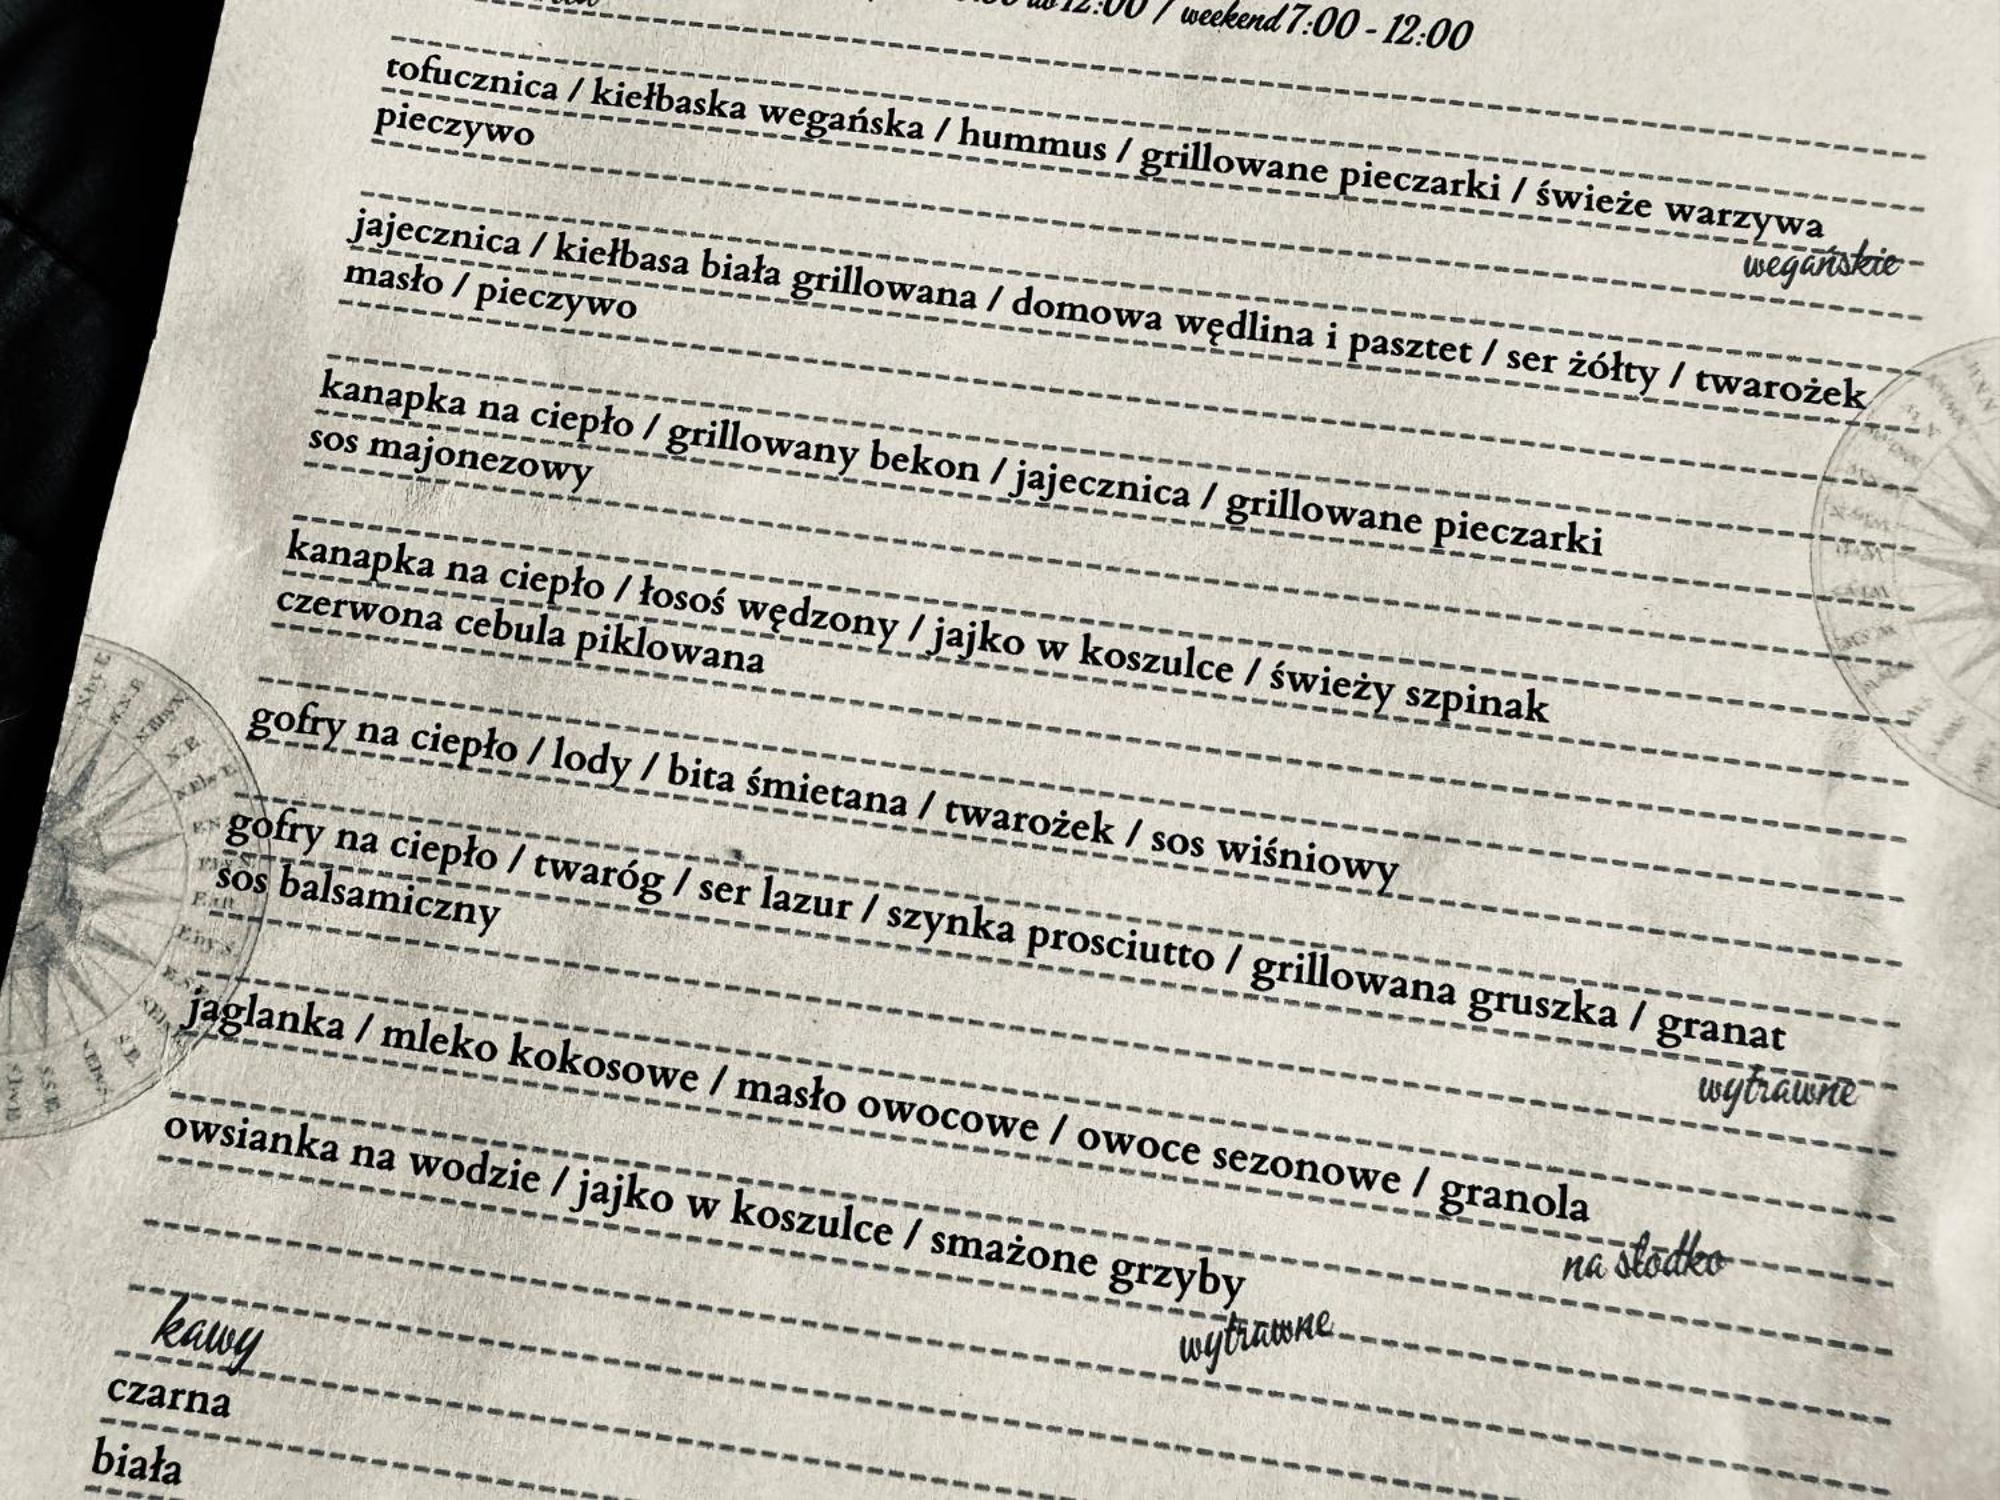 12:00 / weekend 7:00 - 12:00
tofucznica / kiełbaska wegańska / hummus / grillowane pieczarki / świeże warzywa
pieczywo
wegańskie
jajecznica / kiełbasa biała grillowana / domowa wędlina i pasztet / ser żółty / twarożek
masło / pieczywo
kanapka na ciepło / grillowany bekon / jajecznica / grillowane pieczarki
sos majonezowy
kanapka na ciepło / łosoś wędzony / jajko w koszulce / świeży szpinak
czerwona cebula piklowana
gofry na ciepło / lody / bita śmietana / twarożek / sos wiśniowy
gofry na ciepło / twaróg / ser lazur / szynka prosciutto / grillowana gruszka / granat
sos balsamiczny
wytrawne
jaglanka / mleko kokosowe / masło owocowe / owoce sezonowe / granola
na słodko
owsianka na wodzie / jajko w koszulce / smażone grzyby
wytrawne
kawy
czarna
biała